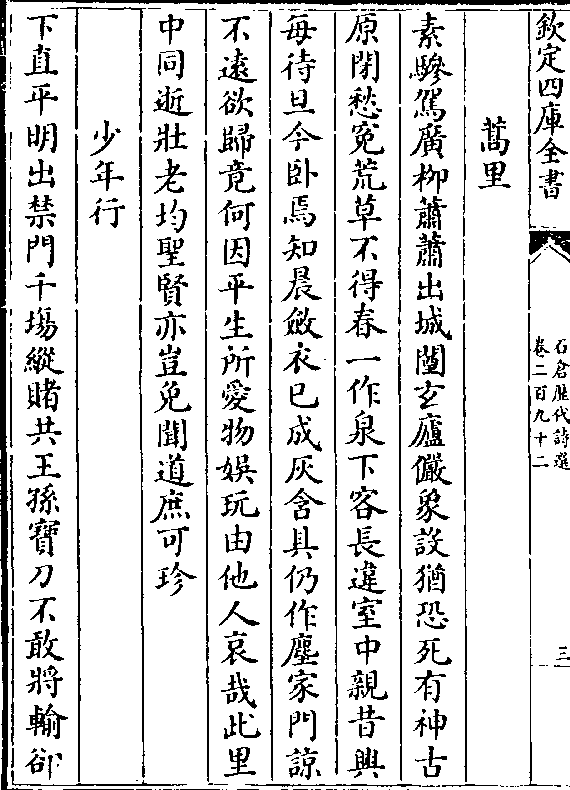 欽定四庫全書
石倉歴代詩選
卷二百九十二
三
蒿里
素驂駕廣柳蕭蕭出城闉玄廬儼象設猶恐死有神古
原閉愁寃荒草不得春一作泉下客長違室中親昔興
每待旦今卧焉知晨斂衣已成灰含具仍作塵家門諒
不遠欲歸竟何因平生所愛物娛玩由他人哀哉此里
中同逝壯老均聖賢亦豈免聞道庶可珍
少年行
下直平明出禁門千場縱賭共王孫寶刀不敢將輸卻